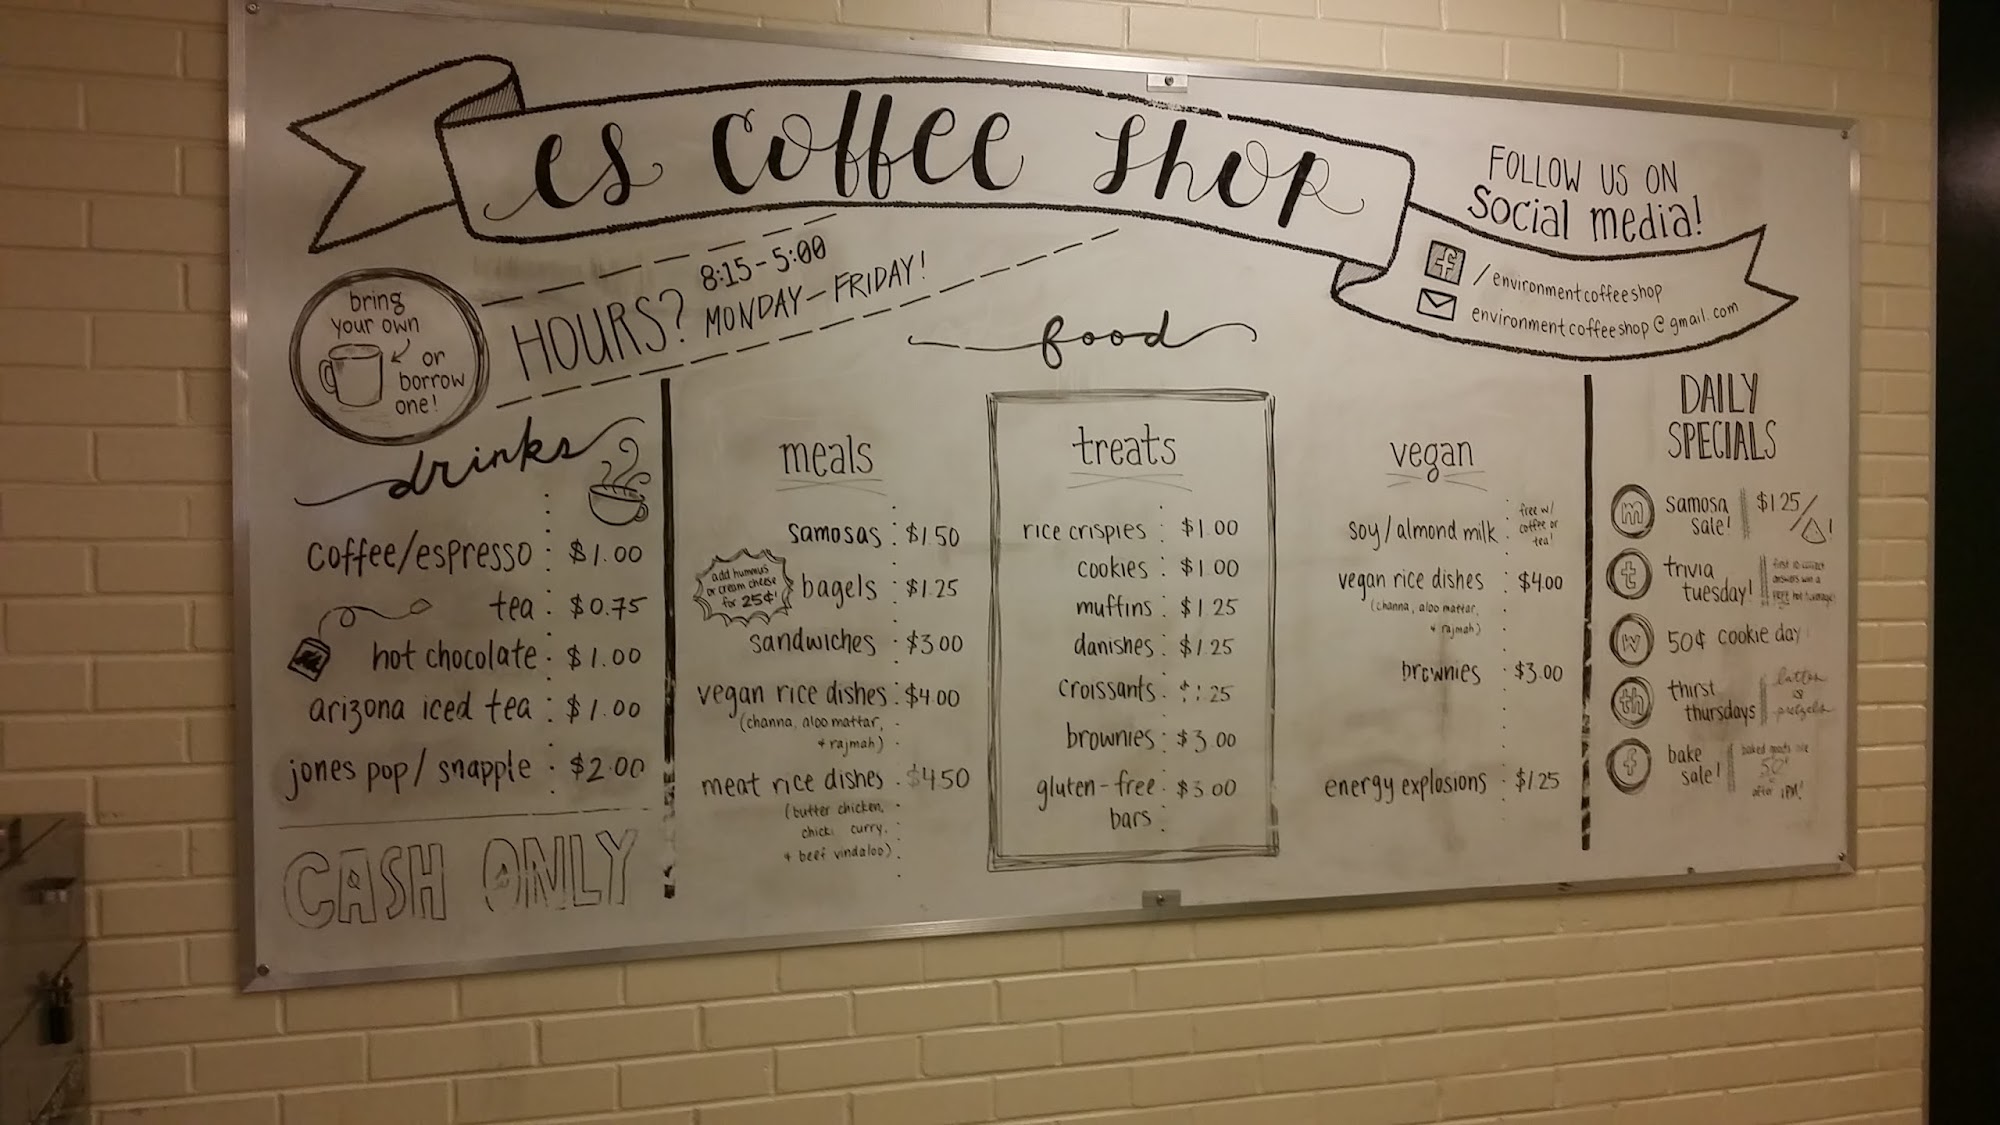 es coffee shop
FOLLOW US ON
Social media!
/environmentcoffeeshop
environmentcoffeeshop@gmail.com
bring
your own
or
borrow
one!
HOURS?
8:15-5:00
MONDAY-FRIDAY!
drinks
coffee/espresso : $1.00
tea : $0.75
hot chocolate : $1.00
arizona iced tea : $1.00
jones pop/ snapple : $2.00
CASH ONLY
food
meals
samosas : $1.50
add hummus
or cream cheese
for 25¢!
bagels : $1.25
sandwiches : $3.00
vegan rice dishes : $4.00
(channa, aloo mattar,
+ rajmah)
meat rice dishes : $4.50
(butter chicken,
curry,
+ beef vindaloo)
treats
rice crispies : $1.00
cookies : $1.00
muffins : $1.25
danishes : $1.25
croissants :
brownies : $3.00
gluten-free : $3.00
bars
vegan
soy/almond milk : free w/
coffee or
tea!
vegan rice dishes : $4.00
(channa, aloo mattar,
+ rajmah)
brownies : $3.00
energy explosions : $1.25
DAILY
SPECIALS
m samosa
sale!
$1.25/
t trivia
tuesday!
w 50¢ cookie day
th thirst
thursdays
lattes
&
pretzels
f bake
sale!
baked goods are
50¢
after 1PM!